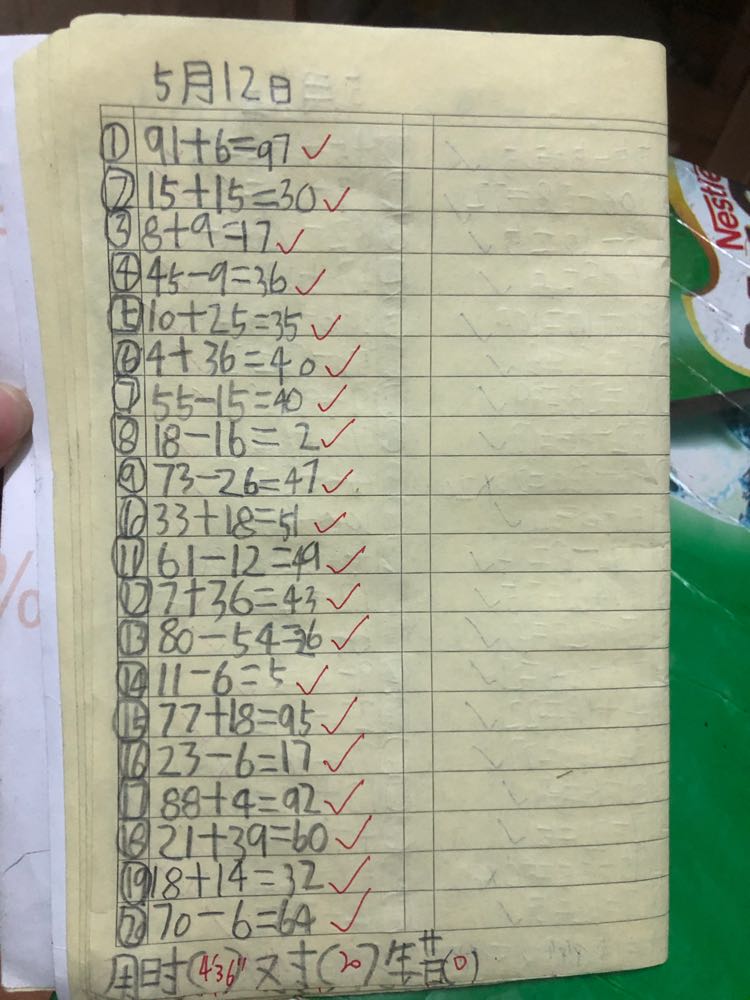 5月12日
① 91+6=97 ✓
② 15+15=30 ✓
③ 8+9=17 ✓
④ 45-9=36 ✓
⑤ 10+25=35 ✓
⑥ 4+36=40 ✓
⑦ 55-15=40 ✓
⑧ 18-16=2 ✓
⑨ 73-26=47 ✓
⑩ 33+18=51 ✓
⑪ 61-12=49 ✓
⑫ 7+36=43 ✓
⑬ 80-54=26 ✓
⑭ 11-6=5 ✓
⑮ 77+18=95 ✓
⑯ 23-6=17 ✓
⑰ 88+4=92 ✓
⑱ 21+39=60 ✓
⑲ 18+14=32 ✓
⑳ 70-6=64 ✓
用时(4'36")对(20)错(0)
Nestlé
%